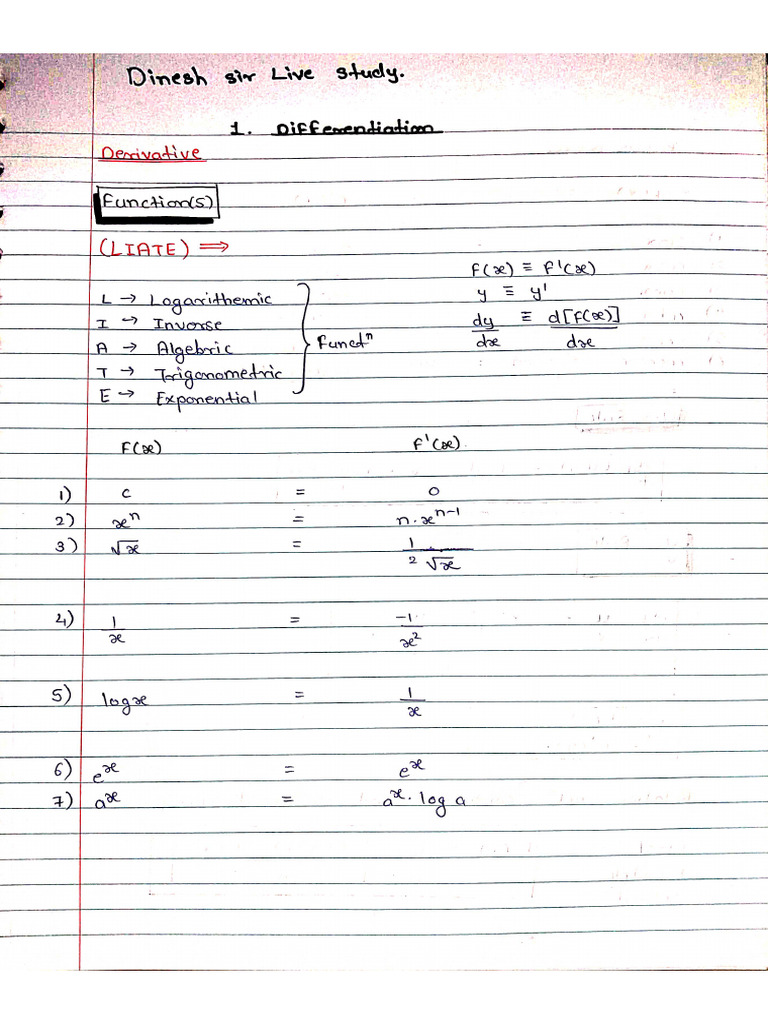 Dinesh sir Live study.
1. Differentiation
Derivative
Function(s)
(LIATE) ⇒
F(x) ≡ F'(x)
y ≡ y'
dy/dx ≡ d[F(x)]/dx
L → Logarithemic
I → Inverse
A → Algebric
T → Trigonometric
E → Exponential
} Functⁿ
F(x) F'(x).
1) c = 0
2) xⁿ = n·xⁿ⁻¹
3) √x = 1/2√x
4) 1/x = -1/x²
5) logx = 1/x
6) eˣ = eˣ
7) aˣ = aˣ·log a